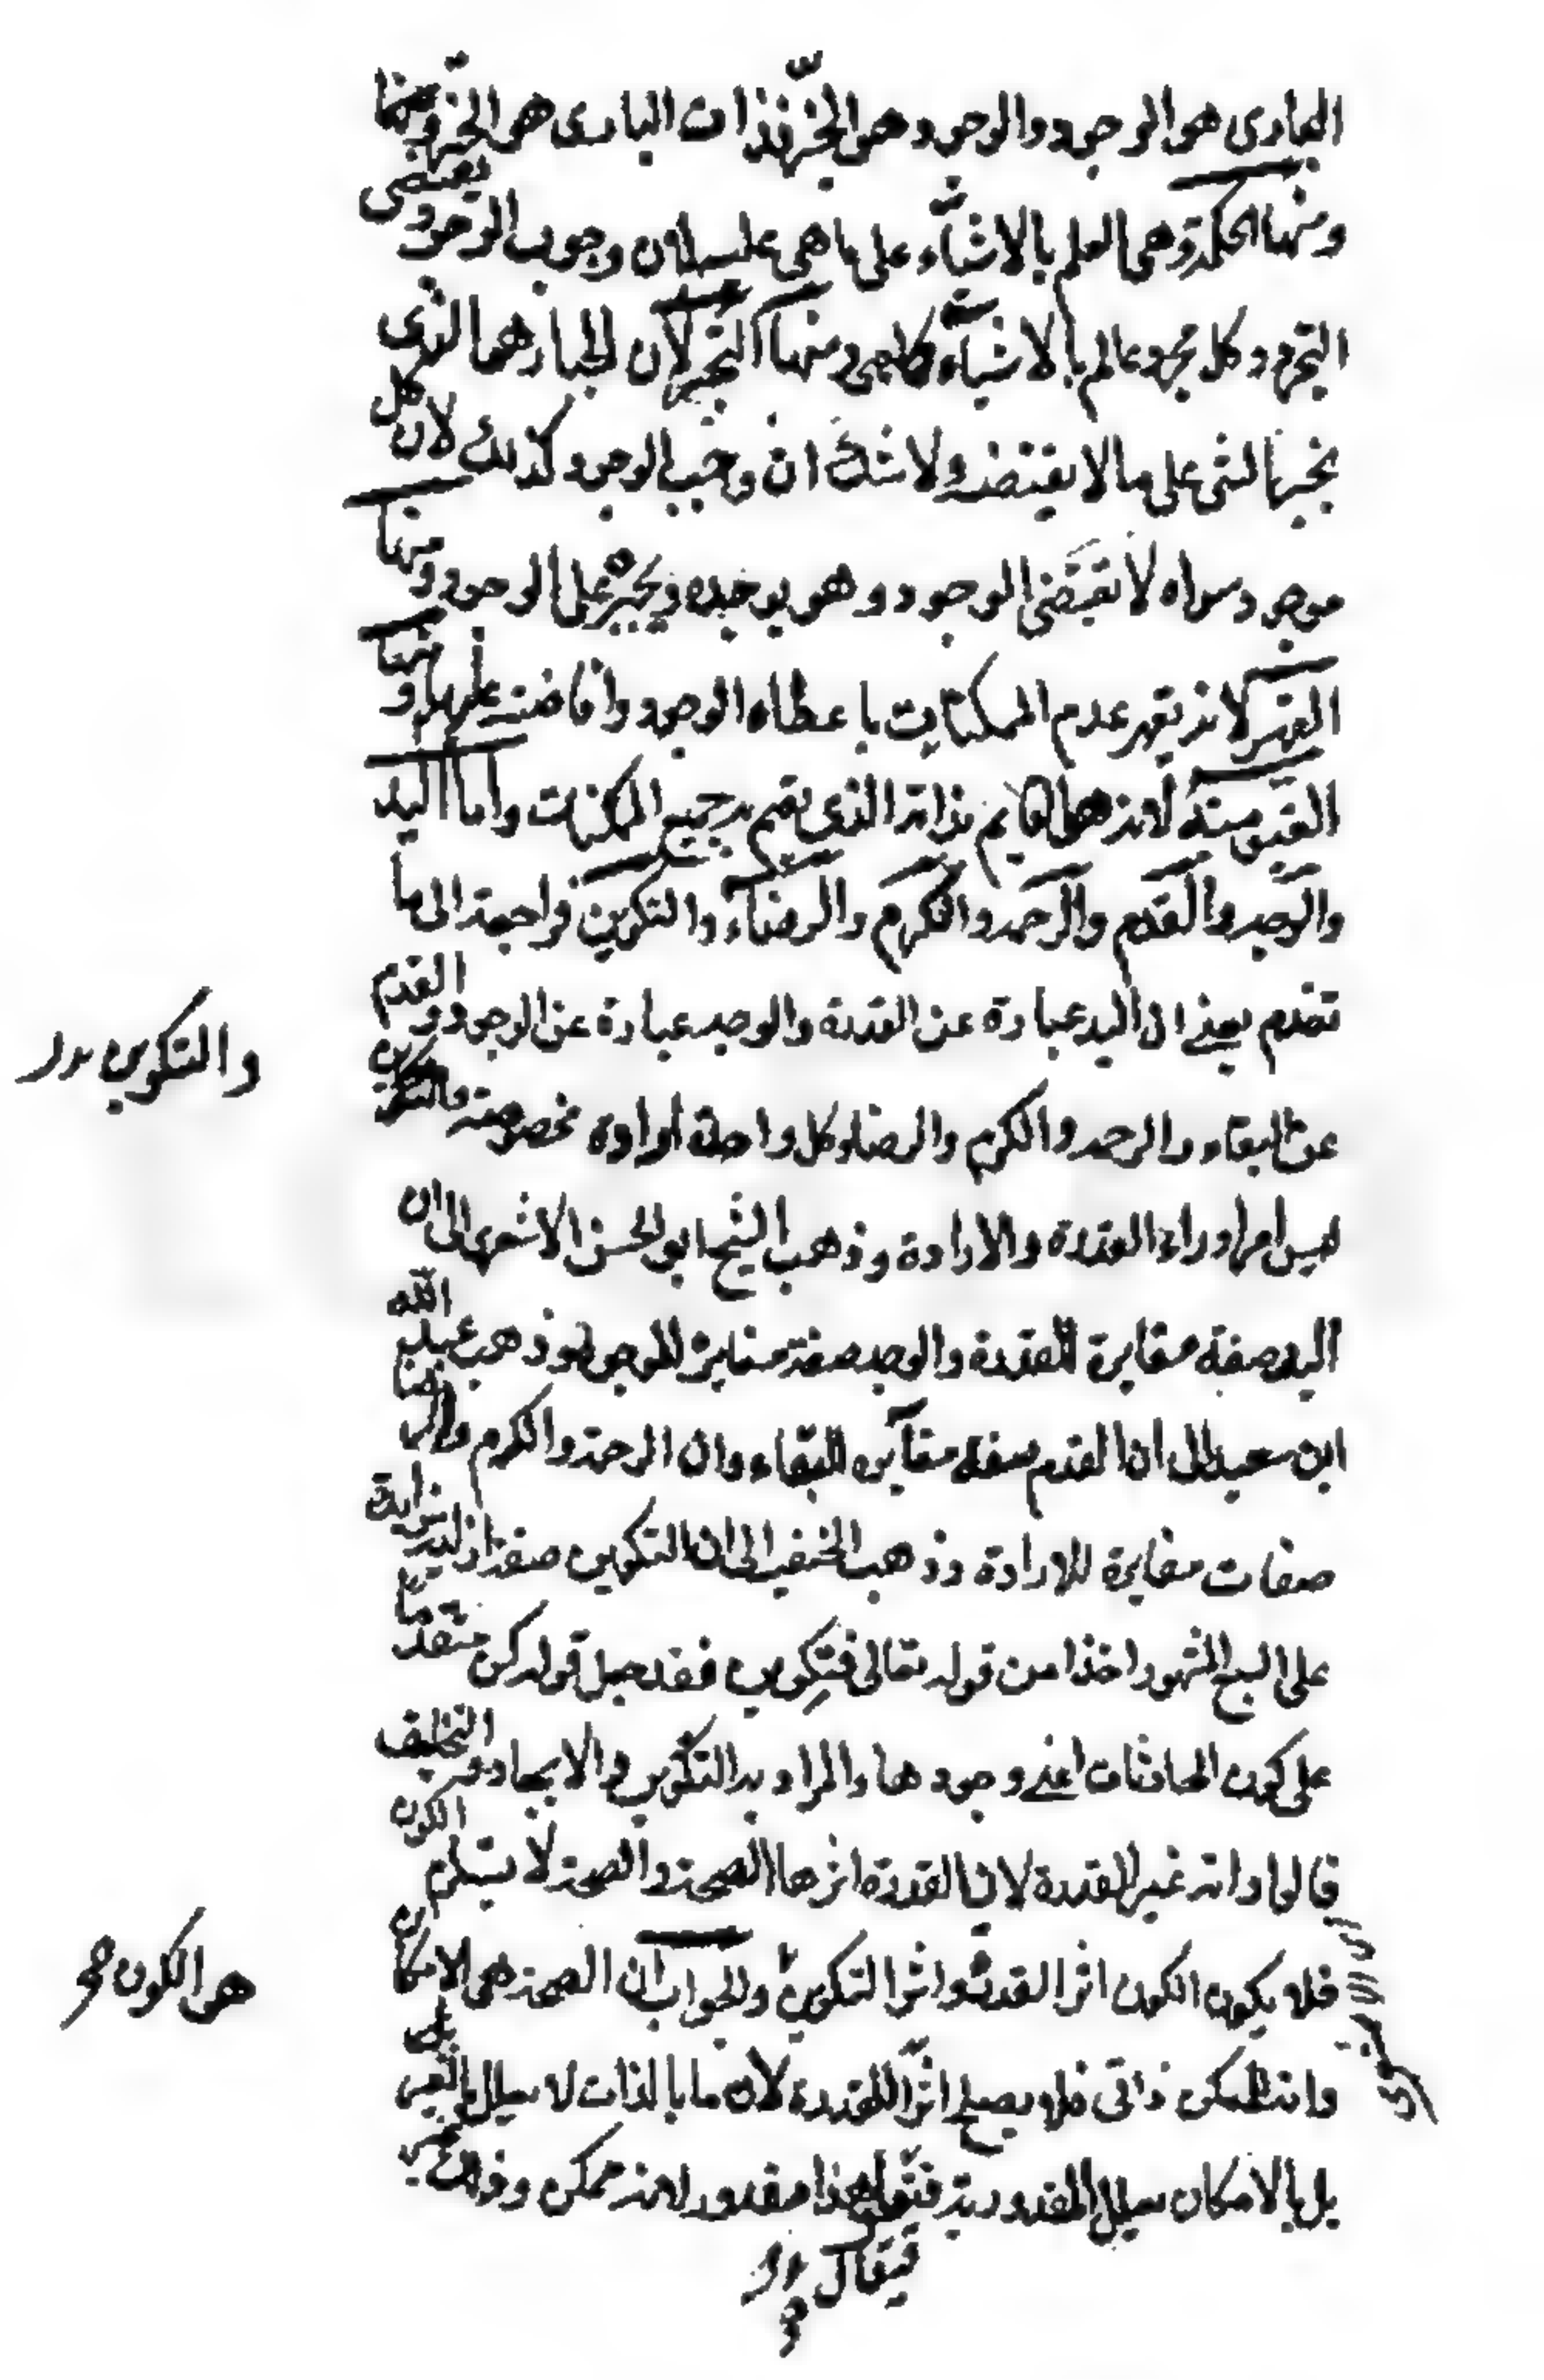 البارى هو الوجود والوجود هو الخير فذات البارى هو الخير
ومنها الحكمة وهى العلم بالاشياء على ما هى عليه لان وجوب الوجود يقتضى
التجرد وكل مجرد عالم بالاشياء ومنها التجبر لان الجبار هما الذى
يجبر الشى على ما لا يقتضيه ولا شك ان وجب الوجود كذلك لان كل
موجود سواه لا يقتضى الوجود وهو يوجده ويجبره على الوجود ومنها
القهر لانه يقهر عدم الممكنات باعطاه الوجود وافاضته عليها ومنها
القيومية لانه هو القايم بذاته الذى يقيم به جميع الممكنات واما اليد
والوجه والقدم والرحمة والكرم والرضاء والتكوين فراجعة الى ما
تقدم يعنى ان اليد عبارة عن القدرة والوجه عبارة عن الوجود والقدم
عن البقاء والرحمة والكرم والرضاء وكل واحد ارادة مخصوصة والتكوين
ليس امرا وراء القدرة والارادة وذهب الشيخ ابو الحسن الاشعرى الى ان
اليد صفة مغايرة للقدرة والوجه صفة مغايرة للوجود وذهب عبد الله
ابن سعيد الى ان القدم صفة مغايره للبقاء وان الرحمة والكرم والرضا
صفات مغايرة للارادة وذهب الحنفية الى ان التكوين صفة ازلية زايدة
على السبع المشهور اخذا من قوله تعالى كن فيكون فقد جعل قوله كن متقدما
على كون الحادثات اعنى وجودها والمراد به التكوين والايجاد والتخليق
قالوا وانه غير القدرة لان القدرة اثرها الصحة والصحة لا يستلزم الكون
فلا يكون الكون اثر القدرة واثر التكوين والجواب ان الصحة هى الامكان
وانه للممكن ذاتى فلا يصلح اثرا للقدرة لان ما بالذات لا يعلل بالغير
بل بالامكان يعلل المقدورية فيقال هذا مقدور لانه ممكن وذلك
والتكوين
هو الكون
فيقال